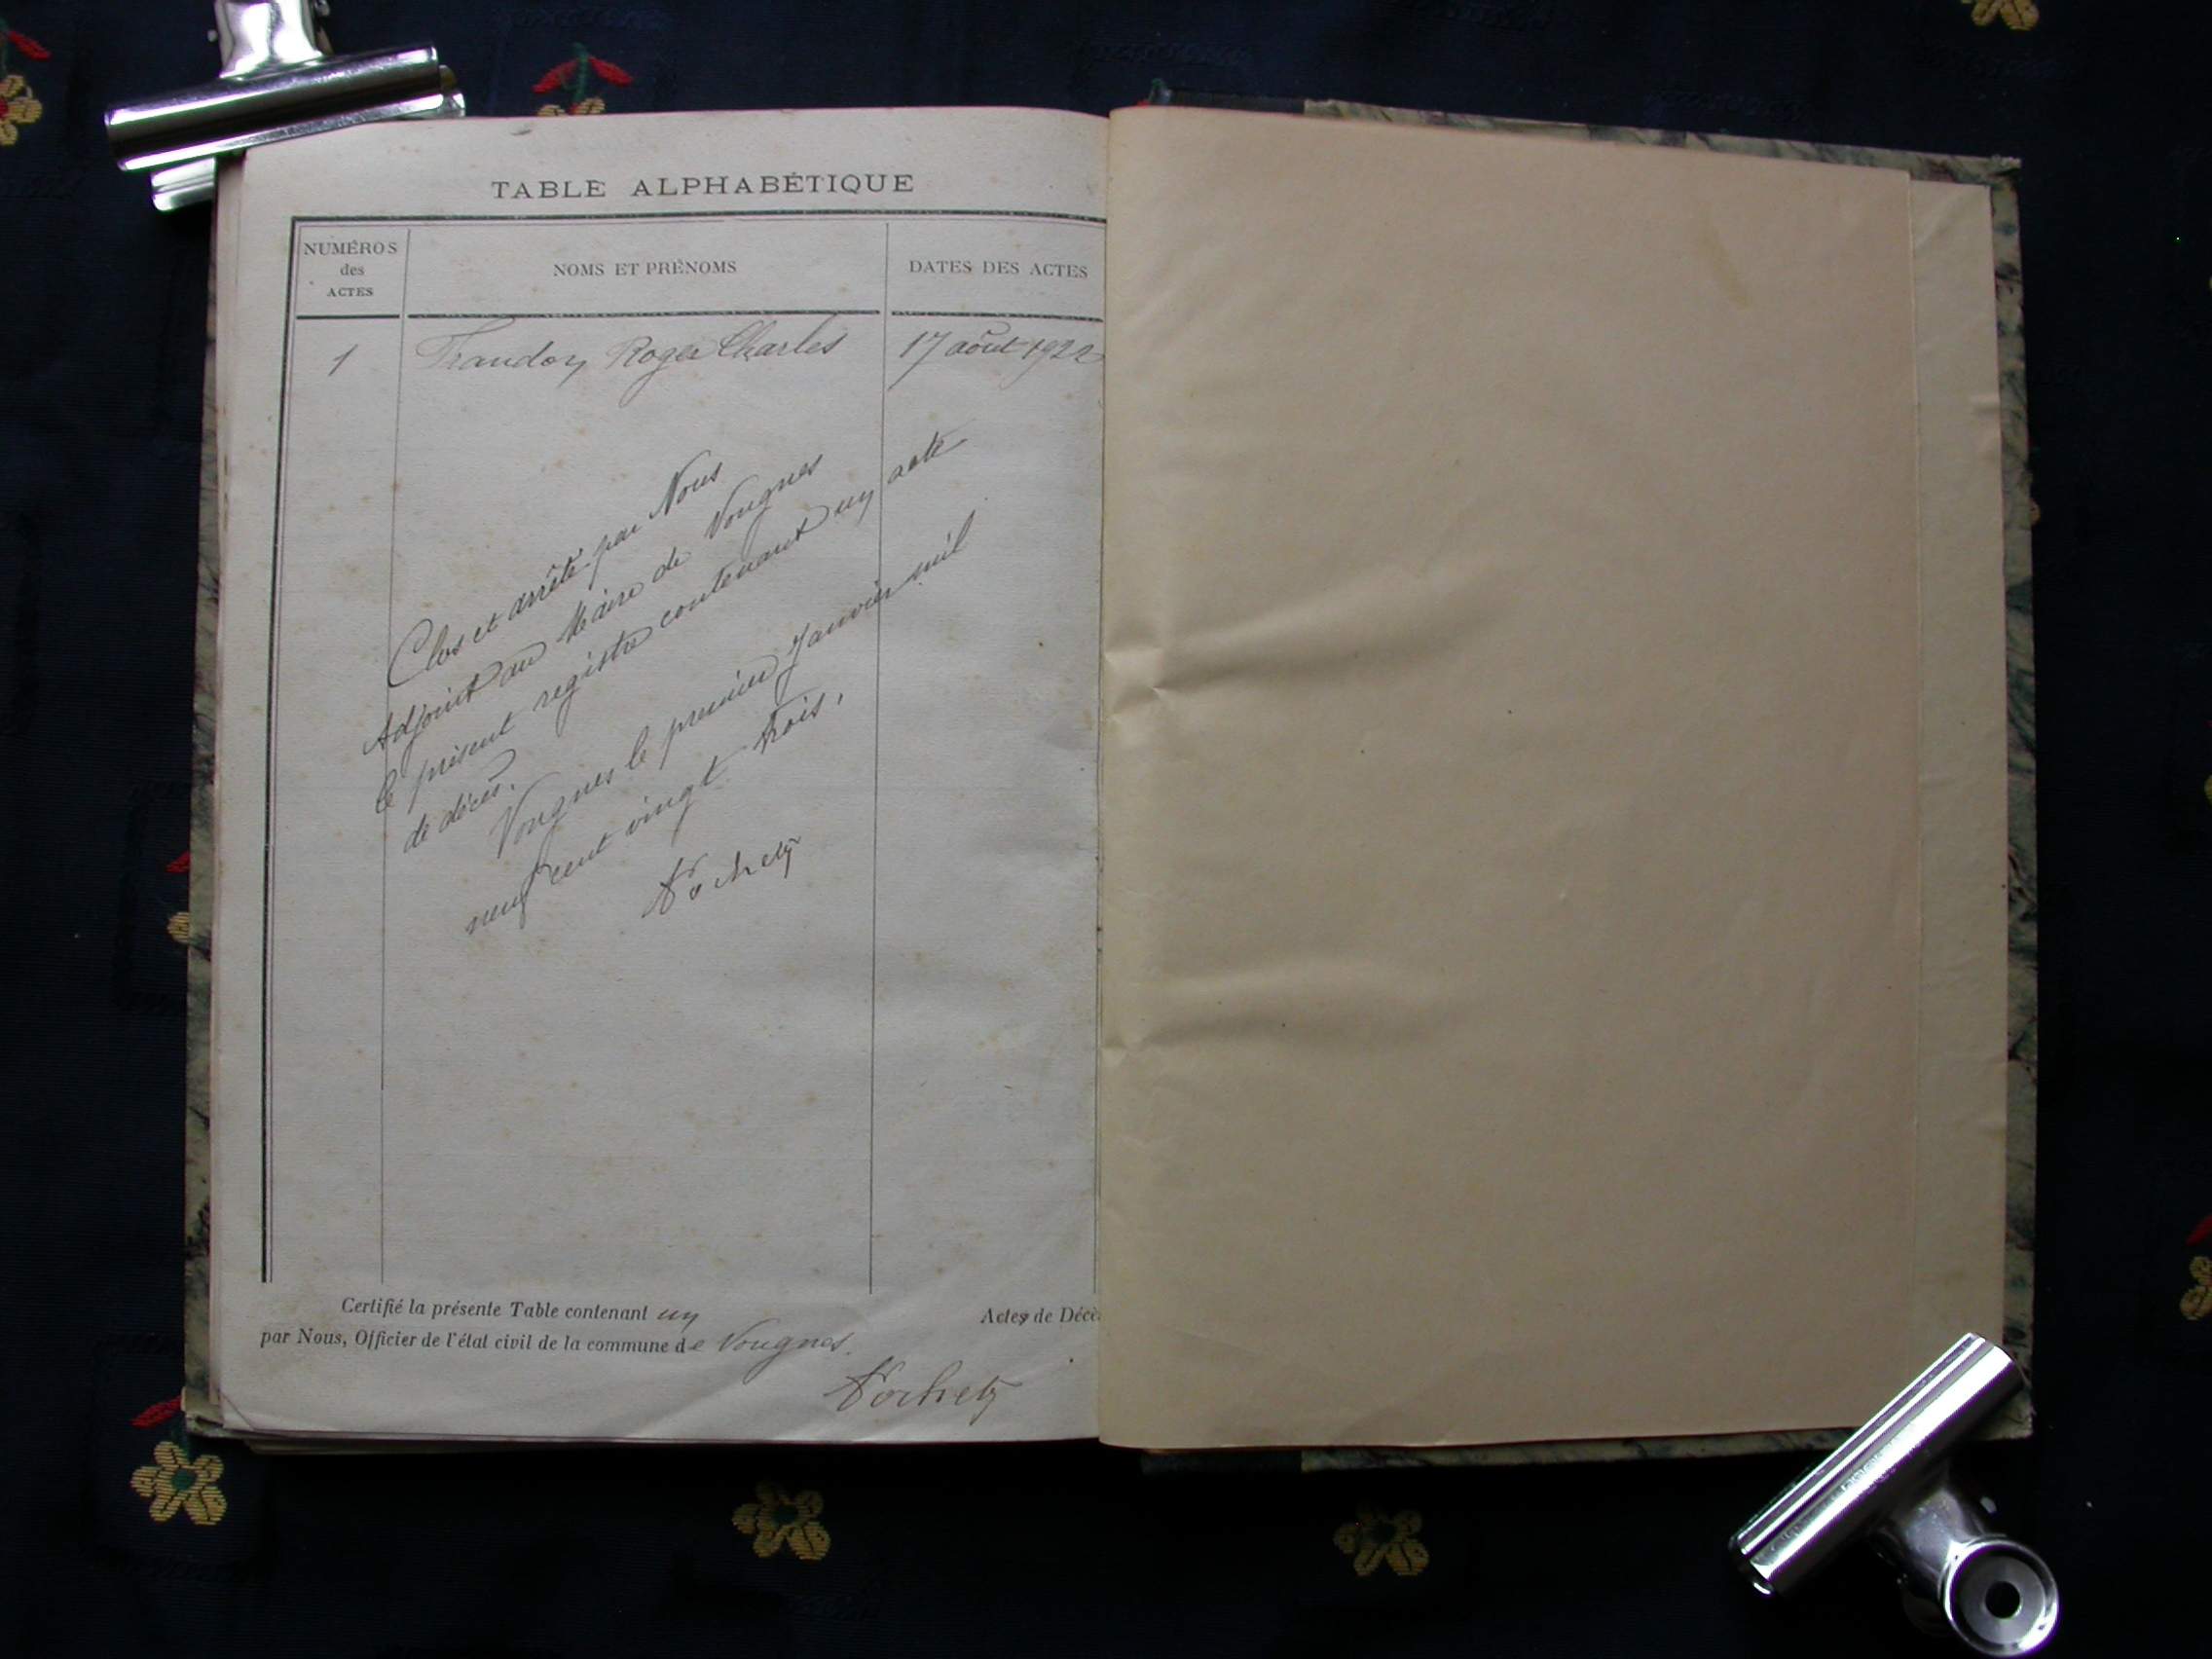 TABLE ALPHABÉTIQUE
NUMÉROS des ACTES
NOMS ET PRÉNOMS
DATES DES ACTES
1 Roger Charles 17 août 1922
Clos et arrêté par Nous
Adjoint au Maire de Vougnes
le présent registre contenant un acte
de décès.
Vougnes le premier Janvier mil
neuf cent vingt trois.
Certifié la présente Table contenant un Actes de Décè
par Nous, Officier de l'état civil de la commune de Vougnes.